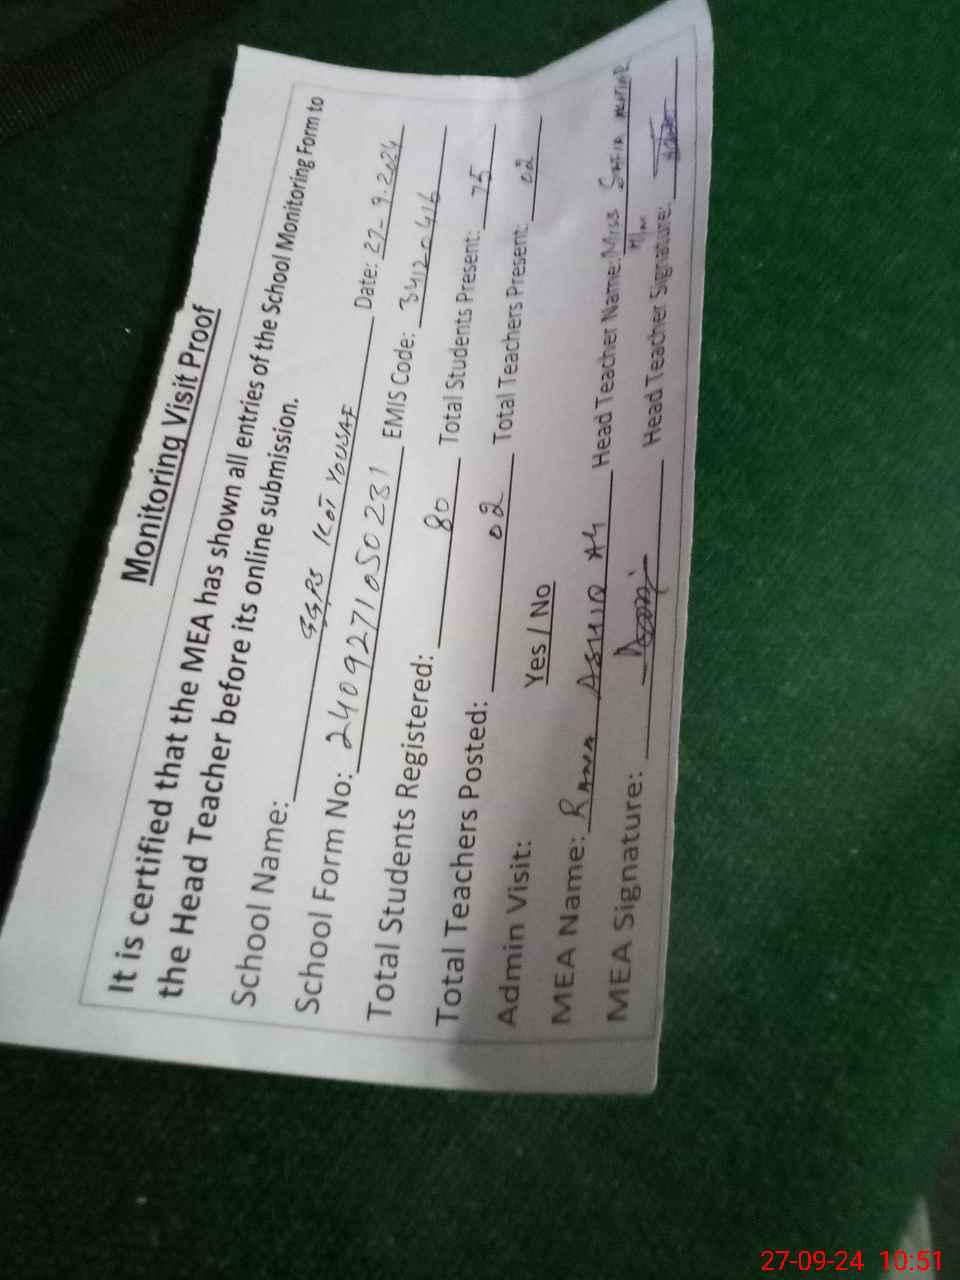 Monitoring Visit Proof
It is certified that the MEA has shown all entries of the School Monitoring Form to
the Head Teacher before its online submission.
School Name: GGPS KOT YOUSAF Date: 27-9-2024
School Form No: 2409271050231 EMIS Code: 34120416
Total Students Registered: 80 Total Students Present: 75
Total Teachers Posted: 02 Total Teachers Present: 02
Admin Visit: Yes / No
MEA Name: RANA ASHIQ Head Teacher Name: Miss SAFIA
MEA Signature: Head Teacher Signature:
27-09-24 10:51